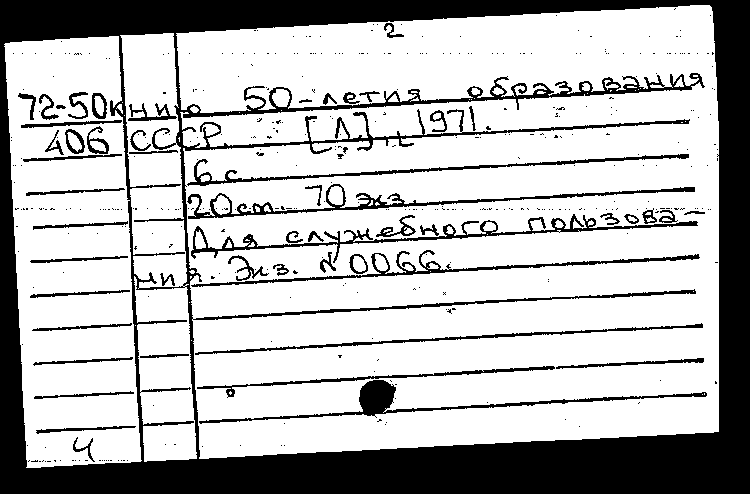 2
72-50книю 50-летия образования
406 СССР. [Л.], 1971.
6 с.
20 см. 70 экз.
Для служебного пользова-
ния. Экз. №0066.
4